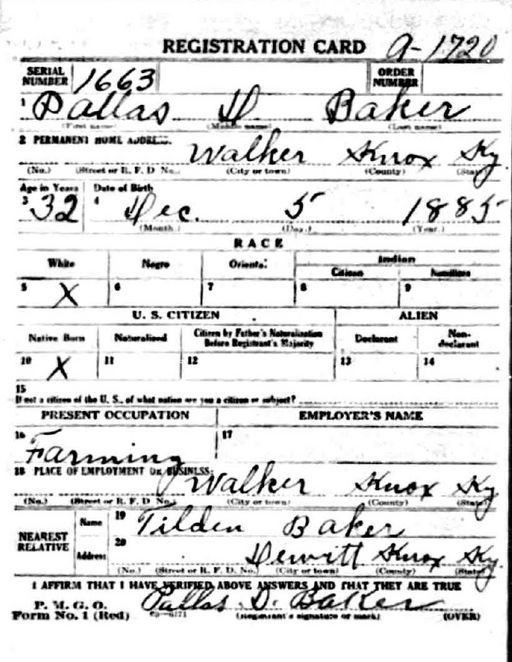 REGISTRATION CARD A-1720
SERIAL NUMBER 1663 ORDER NUMBER
1 Pallas D Baker
(First name) (Middle name) (Last name)
2 PERMANENT HOME ADDRESS. Walker Knox Ky
(No.) (Street or R. F. D No.) (City or town) (County) (State)
Age in Years Date of Birth
3 32 4 Dec. 5 1885
(Month.) (Day.) (Year.)
RACE
White Negro Oriental Indian
Citizen Noncitizen
5 X 6 7 8 9
U. S. CITIZEN ALIEN
Native Born Naturalized Citizen by Father's Naturalization Before Registrant's Majority Declarant Non-declarant
10 X 11 12 13 14
15
If not a citizen of the U. S., of what nation are you a citizen or subject?
PRESENT OCCUPATION EMPLOYER'S NAME
16 Farming 17
18 PLACE OF EMPLOYMENT OR BUSINESS: Walker Knox Ky
(No.) (Street or R. F. D. No.) (City or town) (County) (State)
NEAREST RELATIVE Name 19 Tilden Baker
Address 20 Dewitt Knox Ky
(No.) (Street or R. F. D. No.) (City or town) (County) (State)
I AFFIRM THAT I HAVE VERIFIED ABOVE ANSWERS AND THAT THEY ARE TRUE
P. M. G. O.
Form No. 1 (Red) Pallas D. Baker
(Registrant's signature or mark) (OVER)